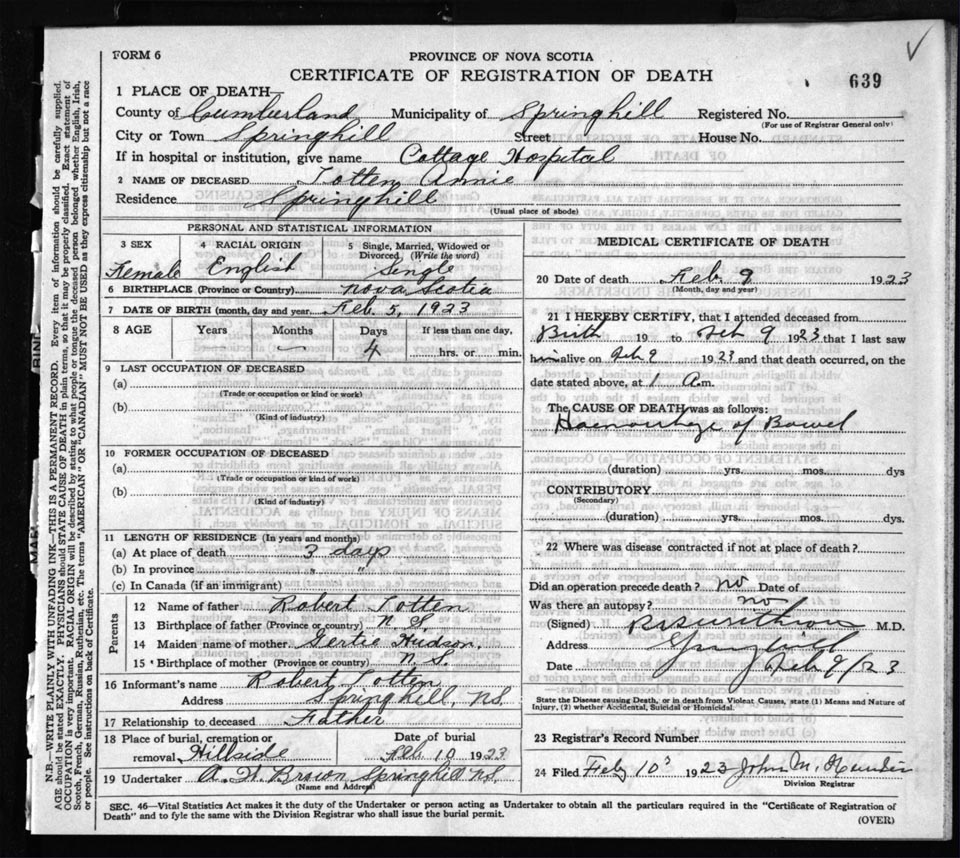 FORM 6
PROVINCE OF NOVA SCOTIA
CERTIFICATE OF REGISTRATION OF DEATH
639
1 PLACE OF DEATH—
County of Cumberland Municipality of Springhill Registered No.
(For use of Registrar General only)
City or Town Springhill Street House No.
If in hospital or institution, give name Cottage Hospital
2 NAME OF DECEASED Totten Annie
Residence Springhill
(Usual place of abode)
PERSONAL AND STATISTICAL INFORMATION
3 SEX 4 RACIAL ORIGIN 5 Single, Married, Widowed or Divorced (Write the word)
Female English Single
6 BIRTHPLACE (Province or Country) Nova Scotia
7 DATE OF BIRTH (month, day and year) Feb. 5, 1923
8 AGE Years Months Days If less than one day,
— 4 hrs. or min.
9 LAST OCCUPATION OF DECEASED
(a)
(Trade or occupation or kind or work)
(b)
(Kind of industry)
10 FORMER OCCUPATION OF DECEASED
(a)
(Trade or occupation or kind or work)
(b)
(Kind of industry)
11 LENGTH OF RESIDENCE (In years and months)
(a) At place of death 3 days
(b) In province " "
(c) In Canada (if an immigrant)
Parents
12 Name of father Robert Totten
13 Birthplace of father (Province or country) N. S.
14 Maiden name of mother Gertie Hudson
15 Birthplace of mother (Province or country) N. S.
16 Informant's name Robert Totten
Address Springhill, N.S.
17 Relationship to deceased Father
18 Place of burial, cremation or removal Hillside Date of burial Feb 10 1923
19 Undertaker Brown Springhill N.S.
(Name and Address)
MEDICAL CERTIFICATE OF DEATH
20 Date of death Feb. 9 1923
(Month, day and year)
21 I HEREBY CERTIFY, that I attended deceased from
Birth 19 to Feb 9 1923 that I last saw
him alive on Feb 9 1923 and that death occurred, on the
date stated above, at 1 A.m.
The CAUSE OF DEATH was as follows:
Haemorrhage of Bowel
(duration) yrs. mos. dys
CONTRIBUTORY
(Secondary)
(duration) yrs. mos. dys.
22 Where was disease contracted if not at place of death?
Did an operation precede death? no Date of
Was there an autopsy? no
(Signed) M.D.
Address Springhill
Date Feb 9/23
State the Disease causing Death, or in death from Violent Causes, state (1) Means and Nature of
Injury, (2) whether Accidental, Suicidal or Homicidal.
23 Registrar's Record Number
24 Filed Feby 10 1923 John M.
Division Registrar
SEC. 46—Vital Statistics Act makes it the duty of the Undertaker or person acting as Undertaker to obtain all the particulars required in the "Certificate of Registration of
Death" and to fyle the same with the Division Registrar who shall issue the burial permit.
(OVER)
N.B.—WRITE PLAINLY WITH UNFADING INK—THIS IS A PERMANENT RECORD. Every item of information should be carefully supplied.
AGE should be stated EXACTLY. PHYSICIANS should STATE CAUSE OF DEATH in plain terms, so that it may be properly classified. Exact statement of
OCCUPATION is very important. RACIAL ORIGIN will be described by stating to what people or tongue the deceased person belonged whether English, Irish,
Scotch, French, German, Russian, Ruthenian, etc. The terms "AMERICAN" OR "CANADIAN" MUST NOT BE USED as they express citizenship but not a race
or people. See instructions on back of Certificate.